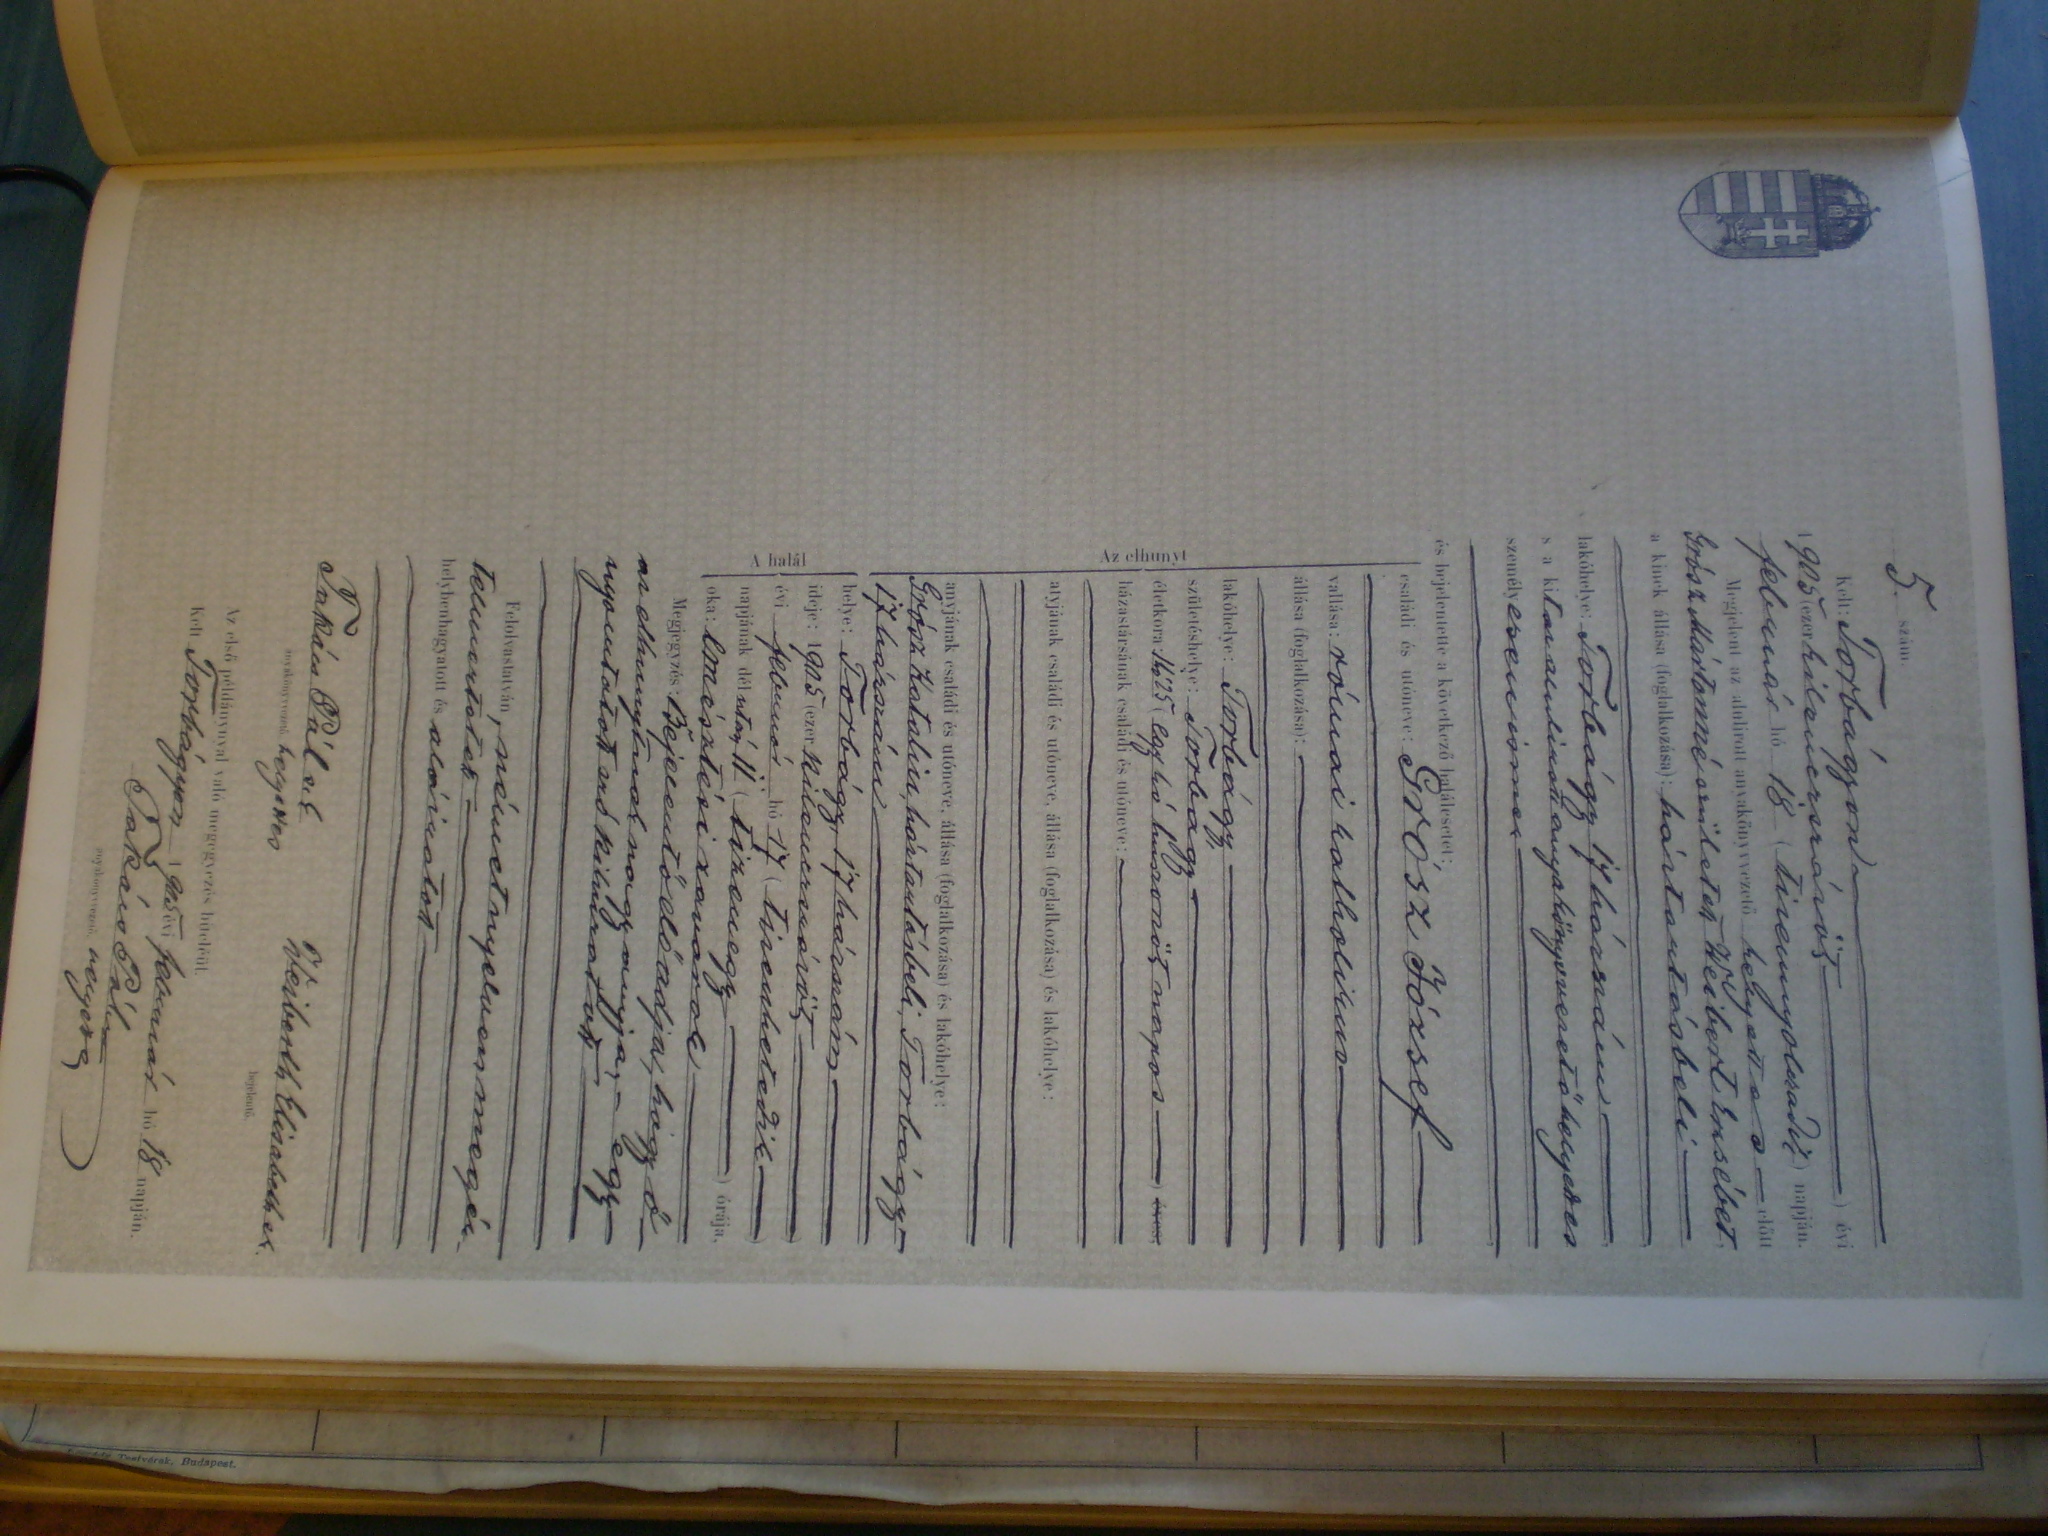 5. szám.
Kelt: Torbágyon
1905 (ezer kilenczszázöt) évi
február hó 18 (tizennyolczadik) napján.
Megjelent az alulirott anyakönyvvezető helyettes előtt
Grósz Mártonné született Weibert Erzsébet,
a kinek állása (foglalkozása): háztartásbeli
lakóhelye: Torbágy, 17 házszám
s a kit az alulirott anyakönyvvezető helyettes
személyesen ismer
és bejelentette a következő halálesetet:
Az elhunyt
családi és utóneve: Grósz József
vallása: római katholikus
állása (foglalkozása):
lakóhelye: Torbágy
születéshelye: Torbágy
életkora: 1 hó 25 (egy hó huszonöt napos) éves.
házastársának családi és utóneve:
atyjának családi és utóneve, állása (foglalkozása) és lakóhelye:
anyjának családi és utóneve, állása (foglalkozása) és lakóhelye:
Grósz Katalin, háztartásbeli, Torbágy
17 házszám
A halál
helye: Torbágy, 17 házszám
ideje: 1905 (ezer kilenczszázöt
évi február hó 17 (tizenhetedik
napjának délután 11 (tizenegy) órája.
oka: emésztési zavarok
Megjegyzés: Bejelentő előadja, hogy ő
az elhunytnak nagyanyja, egy
nyomtatott szó kihúzatott
Felolvastatván, német nyelven megér-
telmertetett
helybenhagyatott és aláiratott
Takács Pál s.k. Weiberth Elisabeth s.k.
anyakönyvvezető helyettes bejelentő.
Az első példánynyal való megegyezés hiteléül.
Kelt Torbágyon 1905 évi február hó 18 napján.
Takács Pál
anyakönyvvezető helyettes
Testvérek, Budapest.